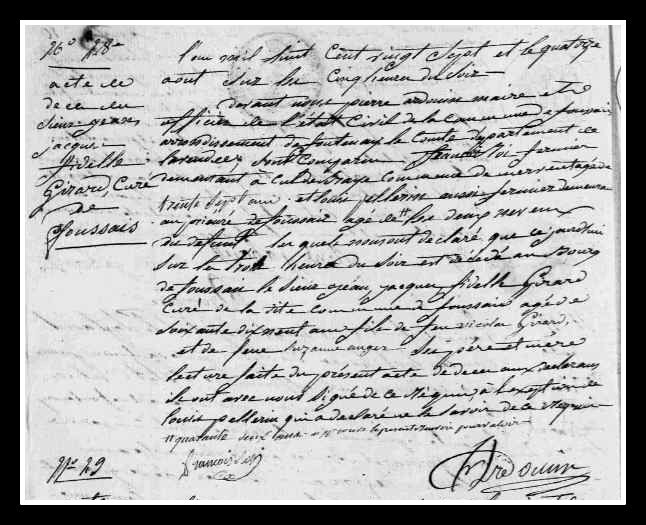 N° 28e
acte de
décès du
Sieur jean
jacque
fidelle
Girard, Curé
de
foussais
l'an mil huit Cent vingt Sept et le quatorze
aout Sur les Cinq heures du Soir
devant nous pierre ardouin maire et
officier de l'état Civil de la Commune de foussais
arrondissement de fontenay le Comte Departement de
la vendée, Sont Comparu fermier
demeurant à Commune de mervent agé de
trente Sept ans et louis pellerin aussi fermier demeurant
au prieuré de foussais agé de tt les deux neveux
du defunt les quels nous ont declaré que ce jourd'hui
Sur les trois heures du Soir est décédé au Bourg
de foussais le Sieur jean jacque fidelle Girard
Curé de la dite Commune de foussais agé de
Soixante dix ans fils de feu nicolas Girard,
et de feue Suzanne auger Ses père et mère
lecture faite du présent acte de deces aux declarans
ils ont avec nous Signé de ce requis, à l'exception de
louis pellerin qui a declaré ne le Savoir de ce requis
tt quarante deux ans
francois
Ardouin
N° 29